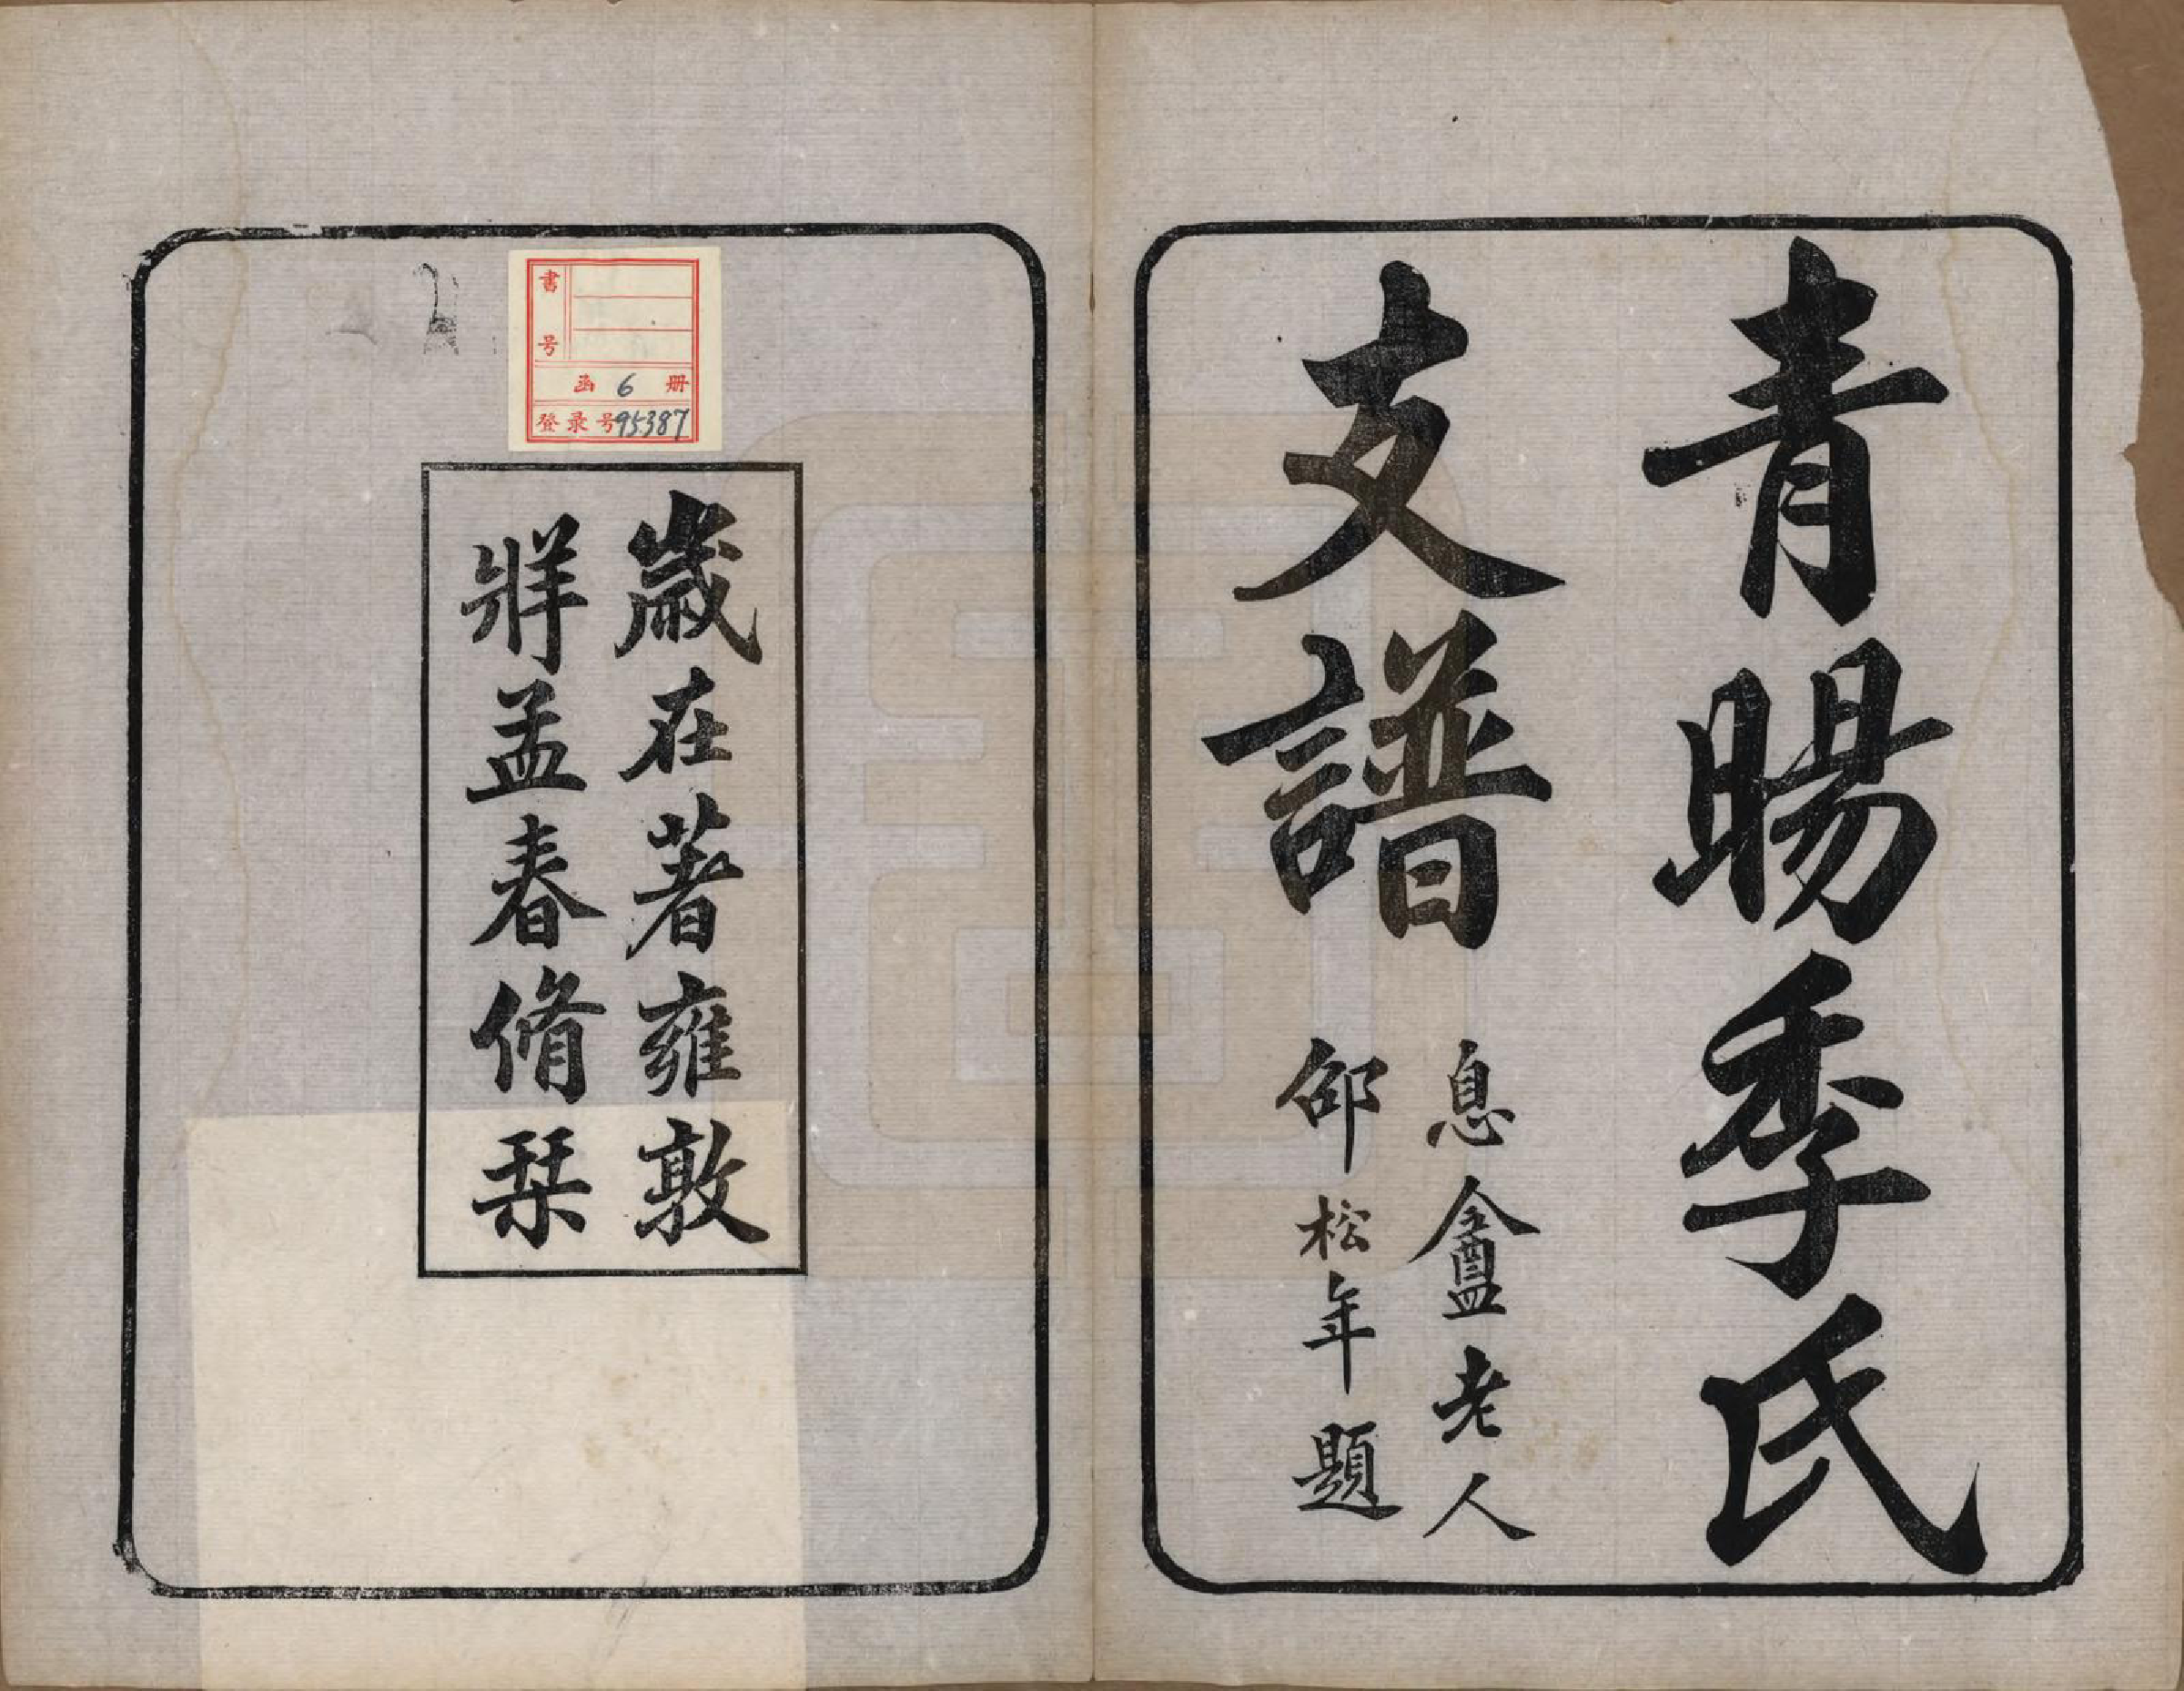 青暘季氏
支譜
息盦老人
邵松年題
歲在著雍敦
牂孟春脩栞
書号
函 6 册
登录号95387